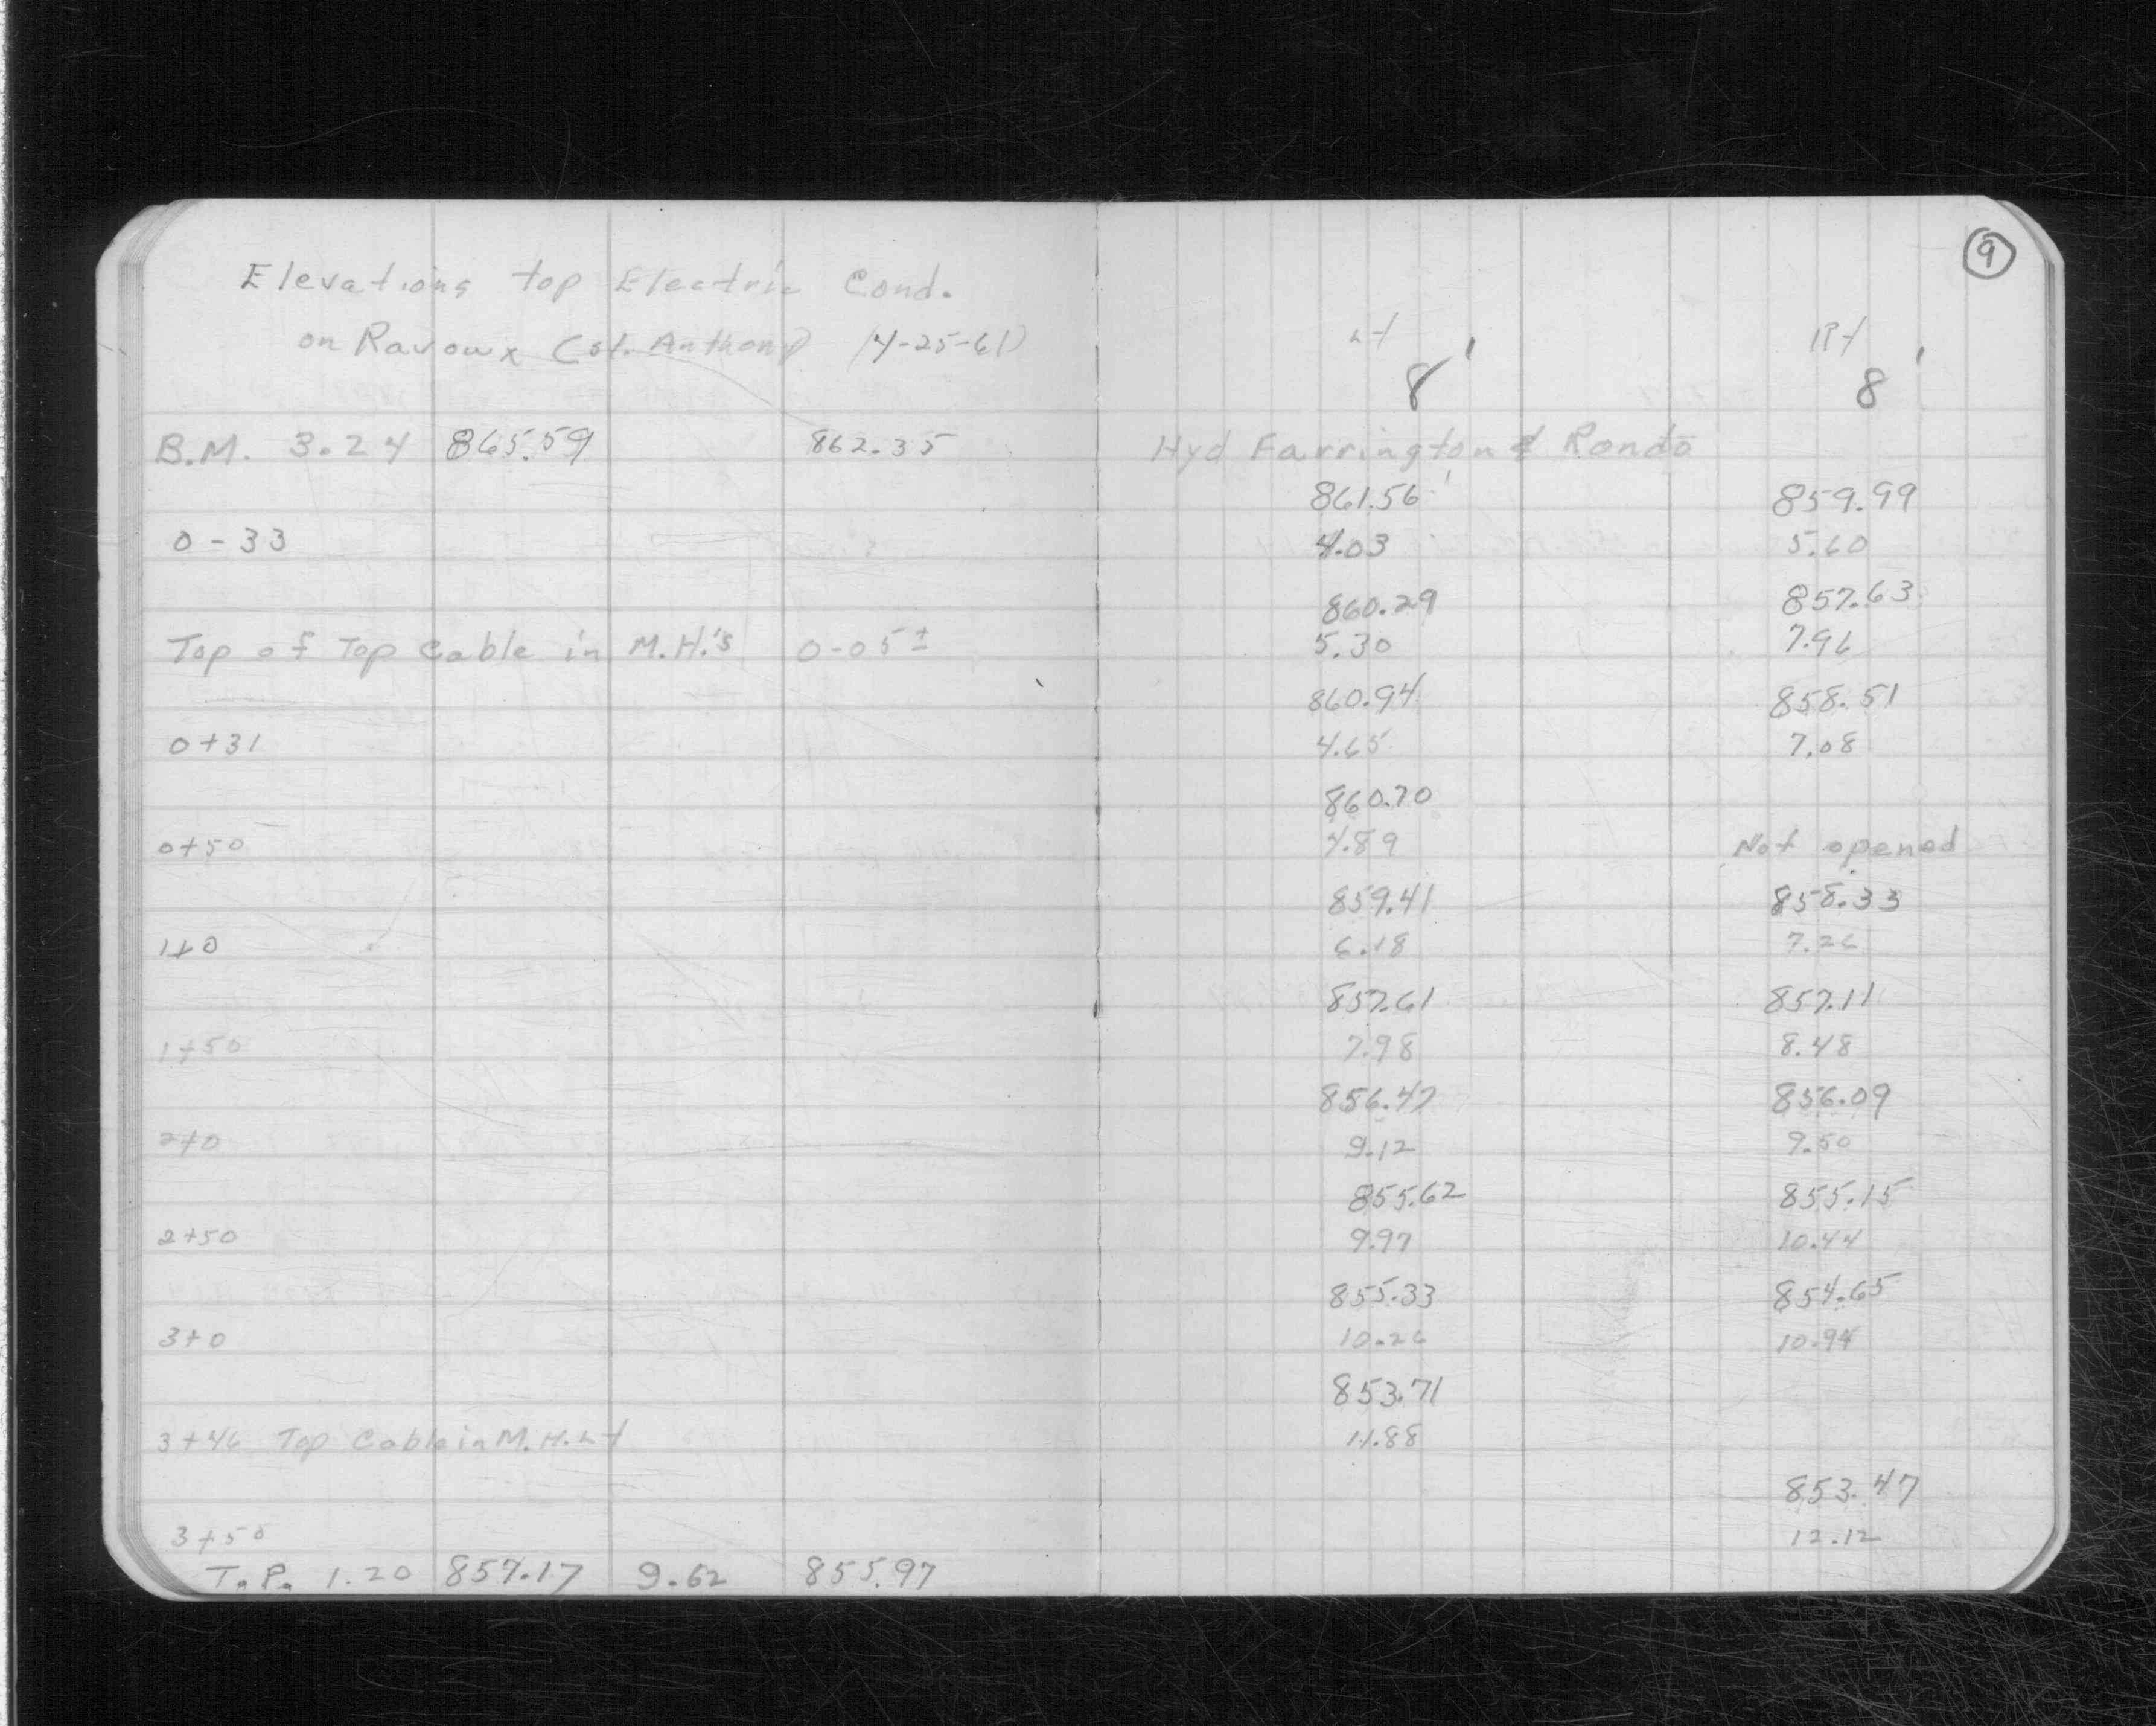 9
Elevations top Electric Cond.
on Ravoux (St. Anthony) (4-25-61)
Lt Rt
8' 8'
B.M. 3.24 865.59 862.35 Hyd Farrington & Rondo
861.56 859.99
0-33 4.03 5.60
860.29 857.63
Top of Top Cable in M.H.'s 0-05± 5.30 7.96
860.94 858.51
0+31 4.65 7.08
860.70
0+50 4.89 Not opened
859.41 858.33
1+0 6.18 7.26
857.61 857.11
1+50 7.98 8.48
856.47 856.09
2+0 9.12 9.50
855.62 855.15
2+50 9.97 10.44
855.33 854.65
3+0 10.26 10.94
853.71
3+46 Top Cable in M.H. Lt 11.88
853.47
3+50 12.12
T.P. 1.20 857.17 9.62 855.97